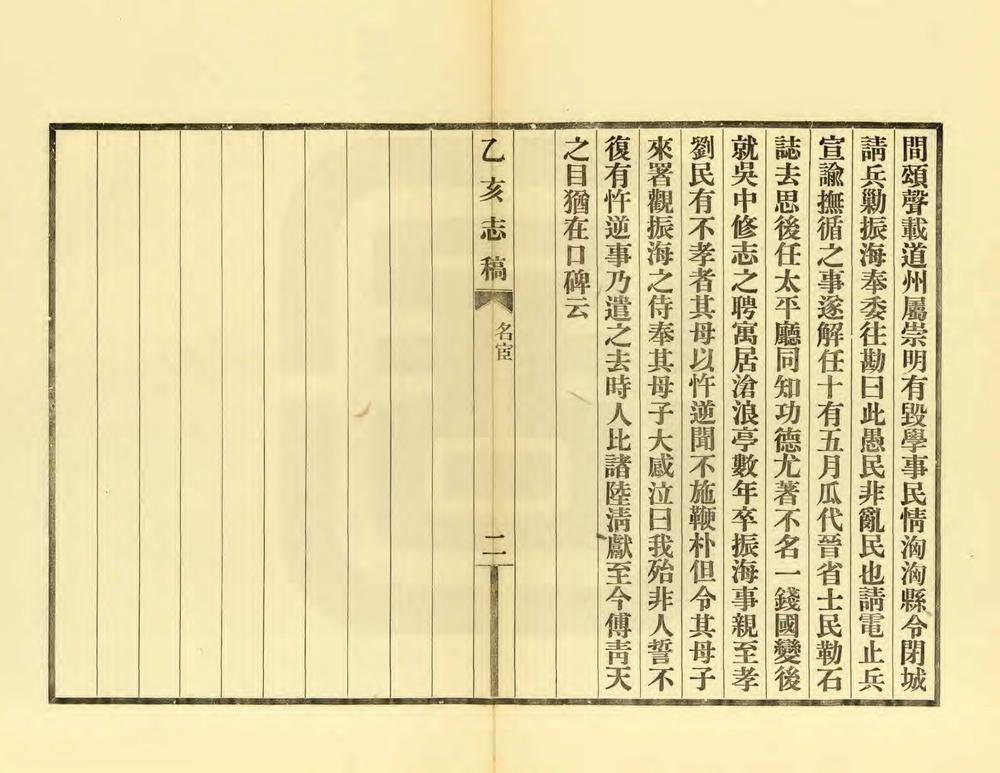 間頌聲載道州屬崇明有毀學事民情洶洶縣令閉城
請兵勦振海奉委往勘曰此愚民非亂民也請電止兵
宣諭撫循之事遂解任十有五月瓜代晉省士民勒石
誌去思後任太平廳同知功德尤著不名一錢國變後
就吳中修志之聘寓居滄浪亭數年卒振海事親至孝
劉民有不孝者其母以忤逆聞不施鞭朴但令其母子
來署觀振海之侍奉其母子大感泣曰我殆非人誓不
復有忤逆事乃遣之去時人比諸陸淸獻至今傅靑天
之目猶在口碑云
乙亥志稿
名宦
二